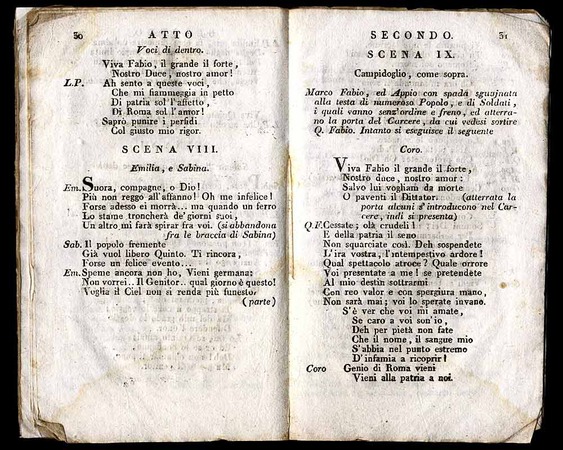 30 ATTO
Voci di dentro.
Viva Fabio, il grande il forte,
Nostro Duce, nostro amor!
L.P. Ah sento a queste voci,
Che mi fiammeggia in petto
Di patria sol l'affetto,
Di Roma sol l'amor!
Saprò punire i perfidi
Col giusto mio rigor.
SCENA VIII.
Emilia, e Sabina.
Em. Suora, compagne, o Dio!
Più non reggo all'affanno! Oh me infelice!
Forse adesso ei morrà... ma quando un ferro
Lo stame troncherà de' giorni suoi,
Un altro mi farà spirar fra voi. (si abbandona
fra le braccia di Sabina)
Sab. Il popolo fremente
Già vuol libero Quinto. Ti rincora,
Forse un felice evento...
Em. Speme ancora non ho, Vieni germana:
Non vorrei.. Il Genitor.. qual giorno è questo!
Voglia il Ciel non si renda più funesto.
(parte)
SECONDO. 31
SCENA IX.
Campidoglio, come sopra.
Marco Fabio, ed Appio con spada sguainata
alla testa di numeroso Popolo, e di Soldati,
i quali vanno senz'ordine e freno, ed atterra-
no la porta del Carcere, da cui vedesi sortire
Q. Fabio. Intanto si eseguisce il seguente
Coro.
Viva Fabio il grande il forte,
Nostro duce, nostro amor:
Salvo lui vogliam da morte
O paventi il Dittator. (atterrata la
porta alcuni s'introducono nel Car-
cere, indi si presenta)
Q.F. Cessate; olà crudeli!
E della patria il seno
Non squarciate così. Deh sospendete
L'ira vostra, l'intempestivo ardore!
Qual spettacolo atroce? Quale orrore
Voi presentate a me! se pretendete
Al mio destin sottrarmi
Con reo valor e con spergiura mano,
Non sarà mai; voi lo sperate invano.
S'è ver che voi mi amate,
Se caro a voi son'io,
Deh per pietà non fate
Che il nome, il sangue mio
S'abbia nel punto estremo
D'infamia a ricoprir!
Coro Genio di Roma vieni
Vieni alla patria a noi.